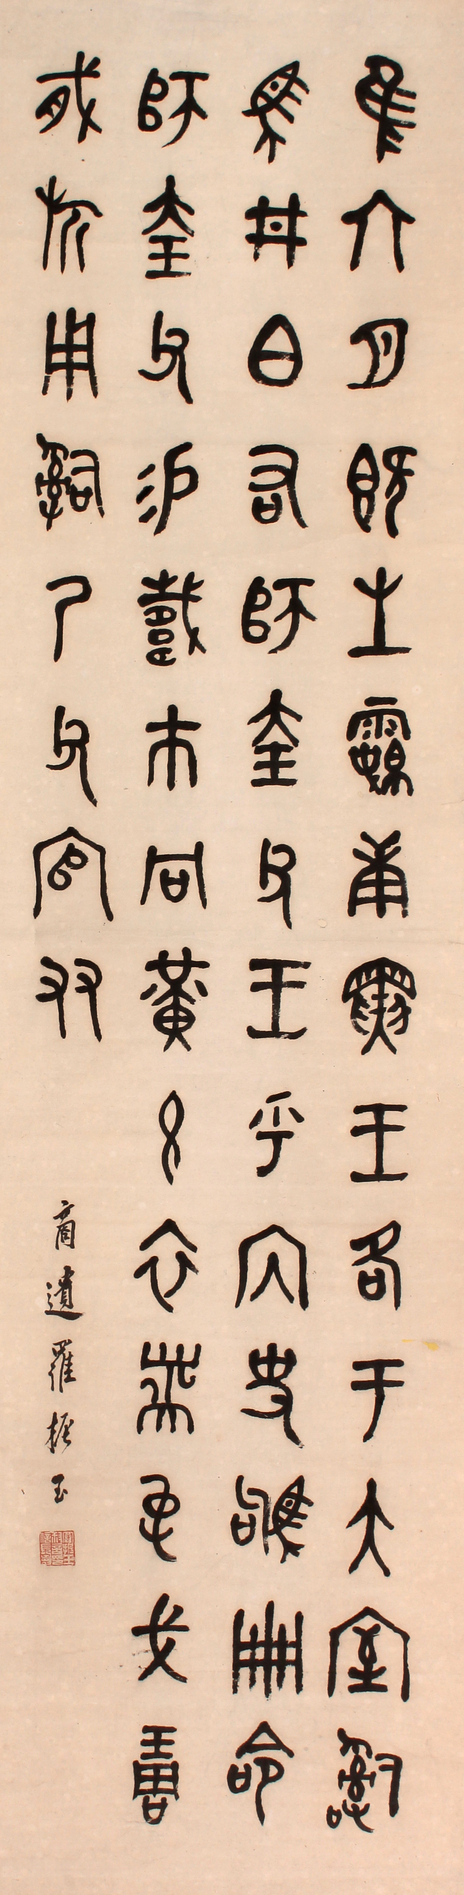 隹六月既生霸庚寅王各于大室𤔲
馬井白右師奎父王乎內史駒冊命
師奎父易載巿冋黃玄衣黹屯戈琱
戟旂用𤔲乃父官友
商遺羅振玉